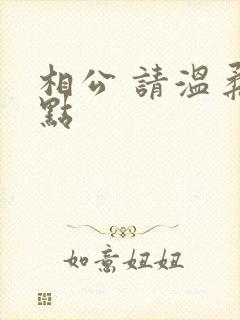 相公 請溫柔
點
如意妞妞